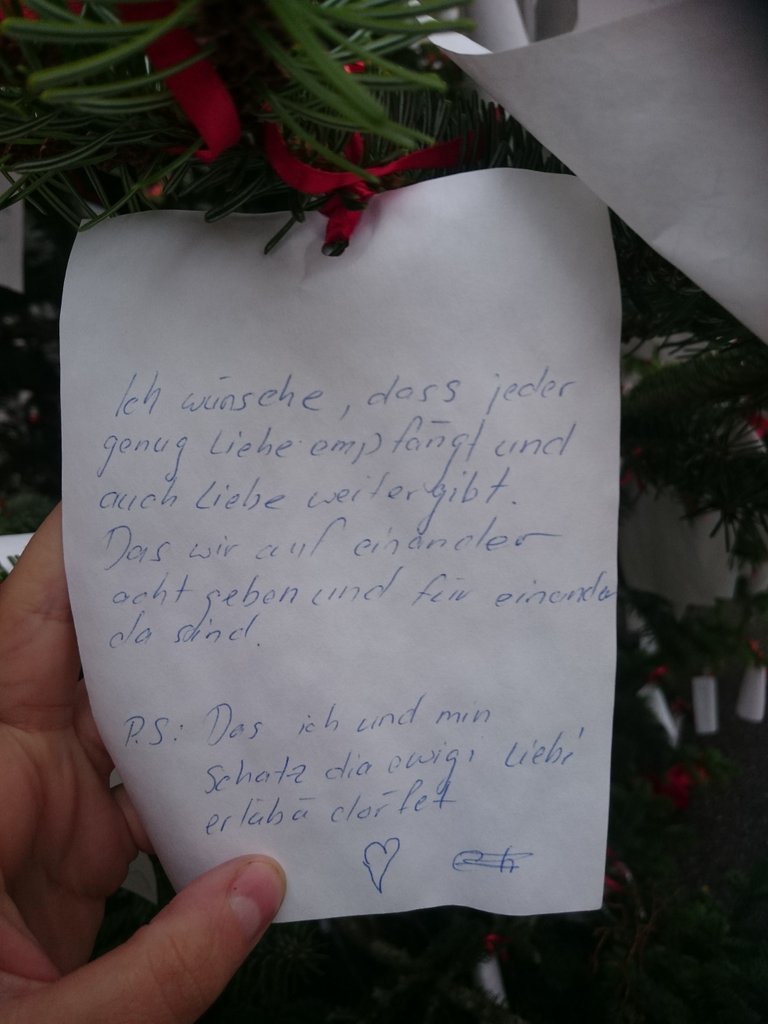 Ich wünsche, dass jeder
genug Liebe empfängt und
auch Liebe weitergibt.
Das wir auf einander
acht geben und für einander
da sind.
P.S: Das ich und min
Schatz dia ewigi Liebi
erläbä dörfet